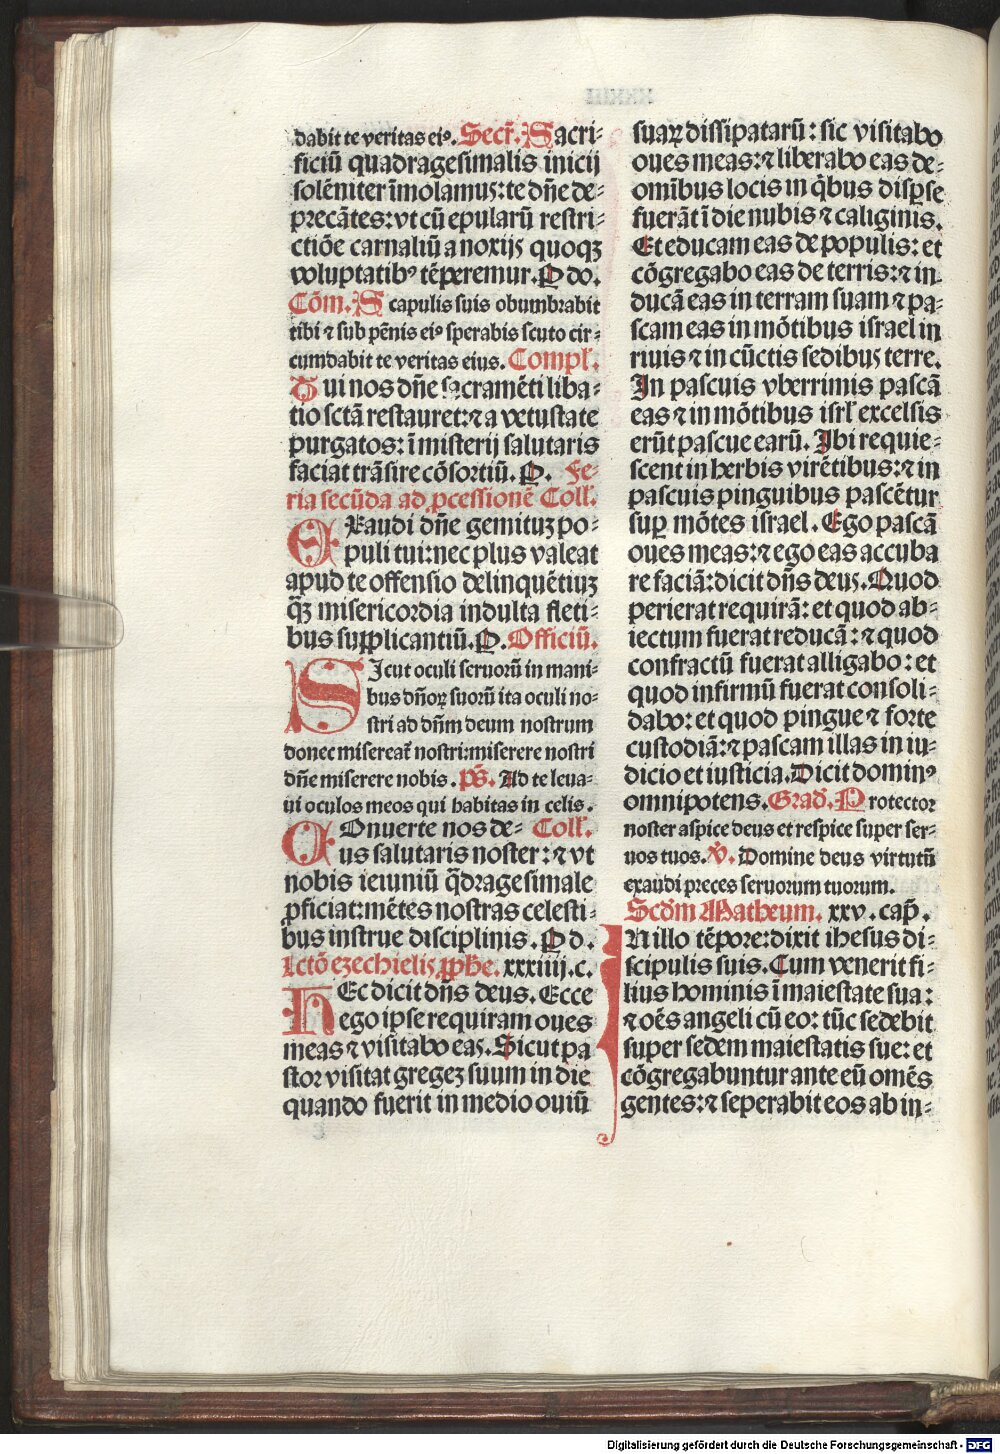 dabit te veritas eiꝰ. Secr̃. Sacri-
ficiū quadragesimalis inicij
solēniter īmolamuꝫ: te dn̄e de-
precātes: vt cū epularū restri-
ctiōe carnaliū a noxijs quoqꝫ
voluptatibꝰ tēperemur. P do.
Cōm. Scapulis suis obumbrabit
tibi ⁊ sub pēnis eiꝰ sperabis scuto cir-
cumdabit te veritas eius. Compl̃.
Tui nos dn̄e sacramēti liba-
tio sctā restauret: ⁊ a vetustate
purgatos: ī misterij salutaris
faciat trāsire cōsortiū. P. Fe-
ria secūda ad ꝓcessionē Coll̃.
EXaudi dn̄e gemituꝫ po-
puli tui: nec plus valeat
apud te offensio delinquētiuꝫ
qꝫ̄ misericordia indulta fleti-
bus supplicantiū. P. Officiū.
SIcut oculi seruorū in mani-
bus dn̄oꝝ suorū ita oculi no-
stri ad dn̄m deum nostrum
donec misereat̃ nostri: miserere nostri
dn̄e miserere nobis. pš. Ad te leua-
ui oculos meos qui habitas in celis.
COnuerte nos de- Coll̃.
us salutaris noster: ⁊ vt
nobis ieiuniū q̄dragesimale
ꝓficiat: mētes nostras celesti-
bus instrue disciplinis. P d.
Lctō ezechielis ꝓphe. xxxiiij. c.
HEc dicit dn̄s deus. Ecce
ego ipse requiram oues
meas ⁊ visitabo eas. Sicut pa
stor visitat gregeꝫ suum in die
quando fuerit in medio ouiū
suaꝝ dissipatarū: sic visitabo
oues meas: ⁊ liberabo eas de-
omībus locis in q̄bus disꝑse
fuerāt ī die nubis ⁊ caliginis.
Et educam eas de populis: et
cōgregabo eas de terris: ⁊ in
ducā eas in terram suam ⁊ pa-
scam eas in mōtibus israel in
riuis ⁊ in cūctis sedibuꝫ terre.
In pascuis vberrimis pascā
eas ⁊ in mōtibus isrl̃ excelsis
erūt pascue earū. Ibi requie-
scent in herbis virētibus: ⁊ in
pascuis pinguibus pascētur
suꝑ mōtes israel. Ego pascā
oues meas: ⁊ ego eas accuba
re faciā: dicit dn̄s deuꝫ. Quod
perierat requirā: et quod ab-
iectum fuerat reducā: ⁊ quod
confractū fuerat alligabo: et
quod infirmū fuerat consoli-
dabo: et quod pingue ⁊ forte
custodiā: ⁊ pascam illas in iu-
dicio et iusticia. Dicit dominꝰ
omnipotens. Grad̃. Protector
noster aspice deus et respice super ser-
uos tuos. v̄. Domine deus virtutū
exaudi preces seruorum tuorum.
Scdm̄ Matheum. xxv. cap̄.
IN illo tēpore: dixit ihesus di-
scipulis suis. Cum venerit fi-
lius hominis ī maiestate sua:
⁊ oēs angeli cū eo: tūc sedebit
super sedem maiestatis sue: et
cōgregabuntur ante eū omēs
gentes: ⁊ seperabit eos ab in-
Digitalisierung gefördert durch die Deutsche Forschungsgemeinschaft - DFG